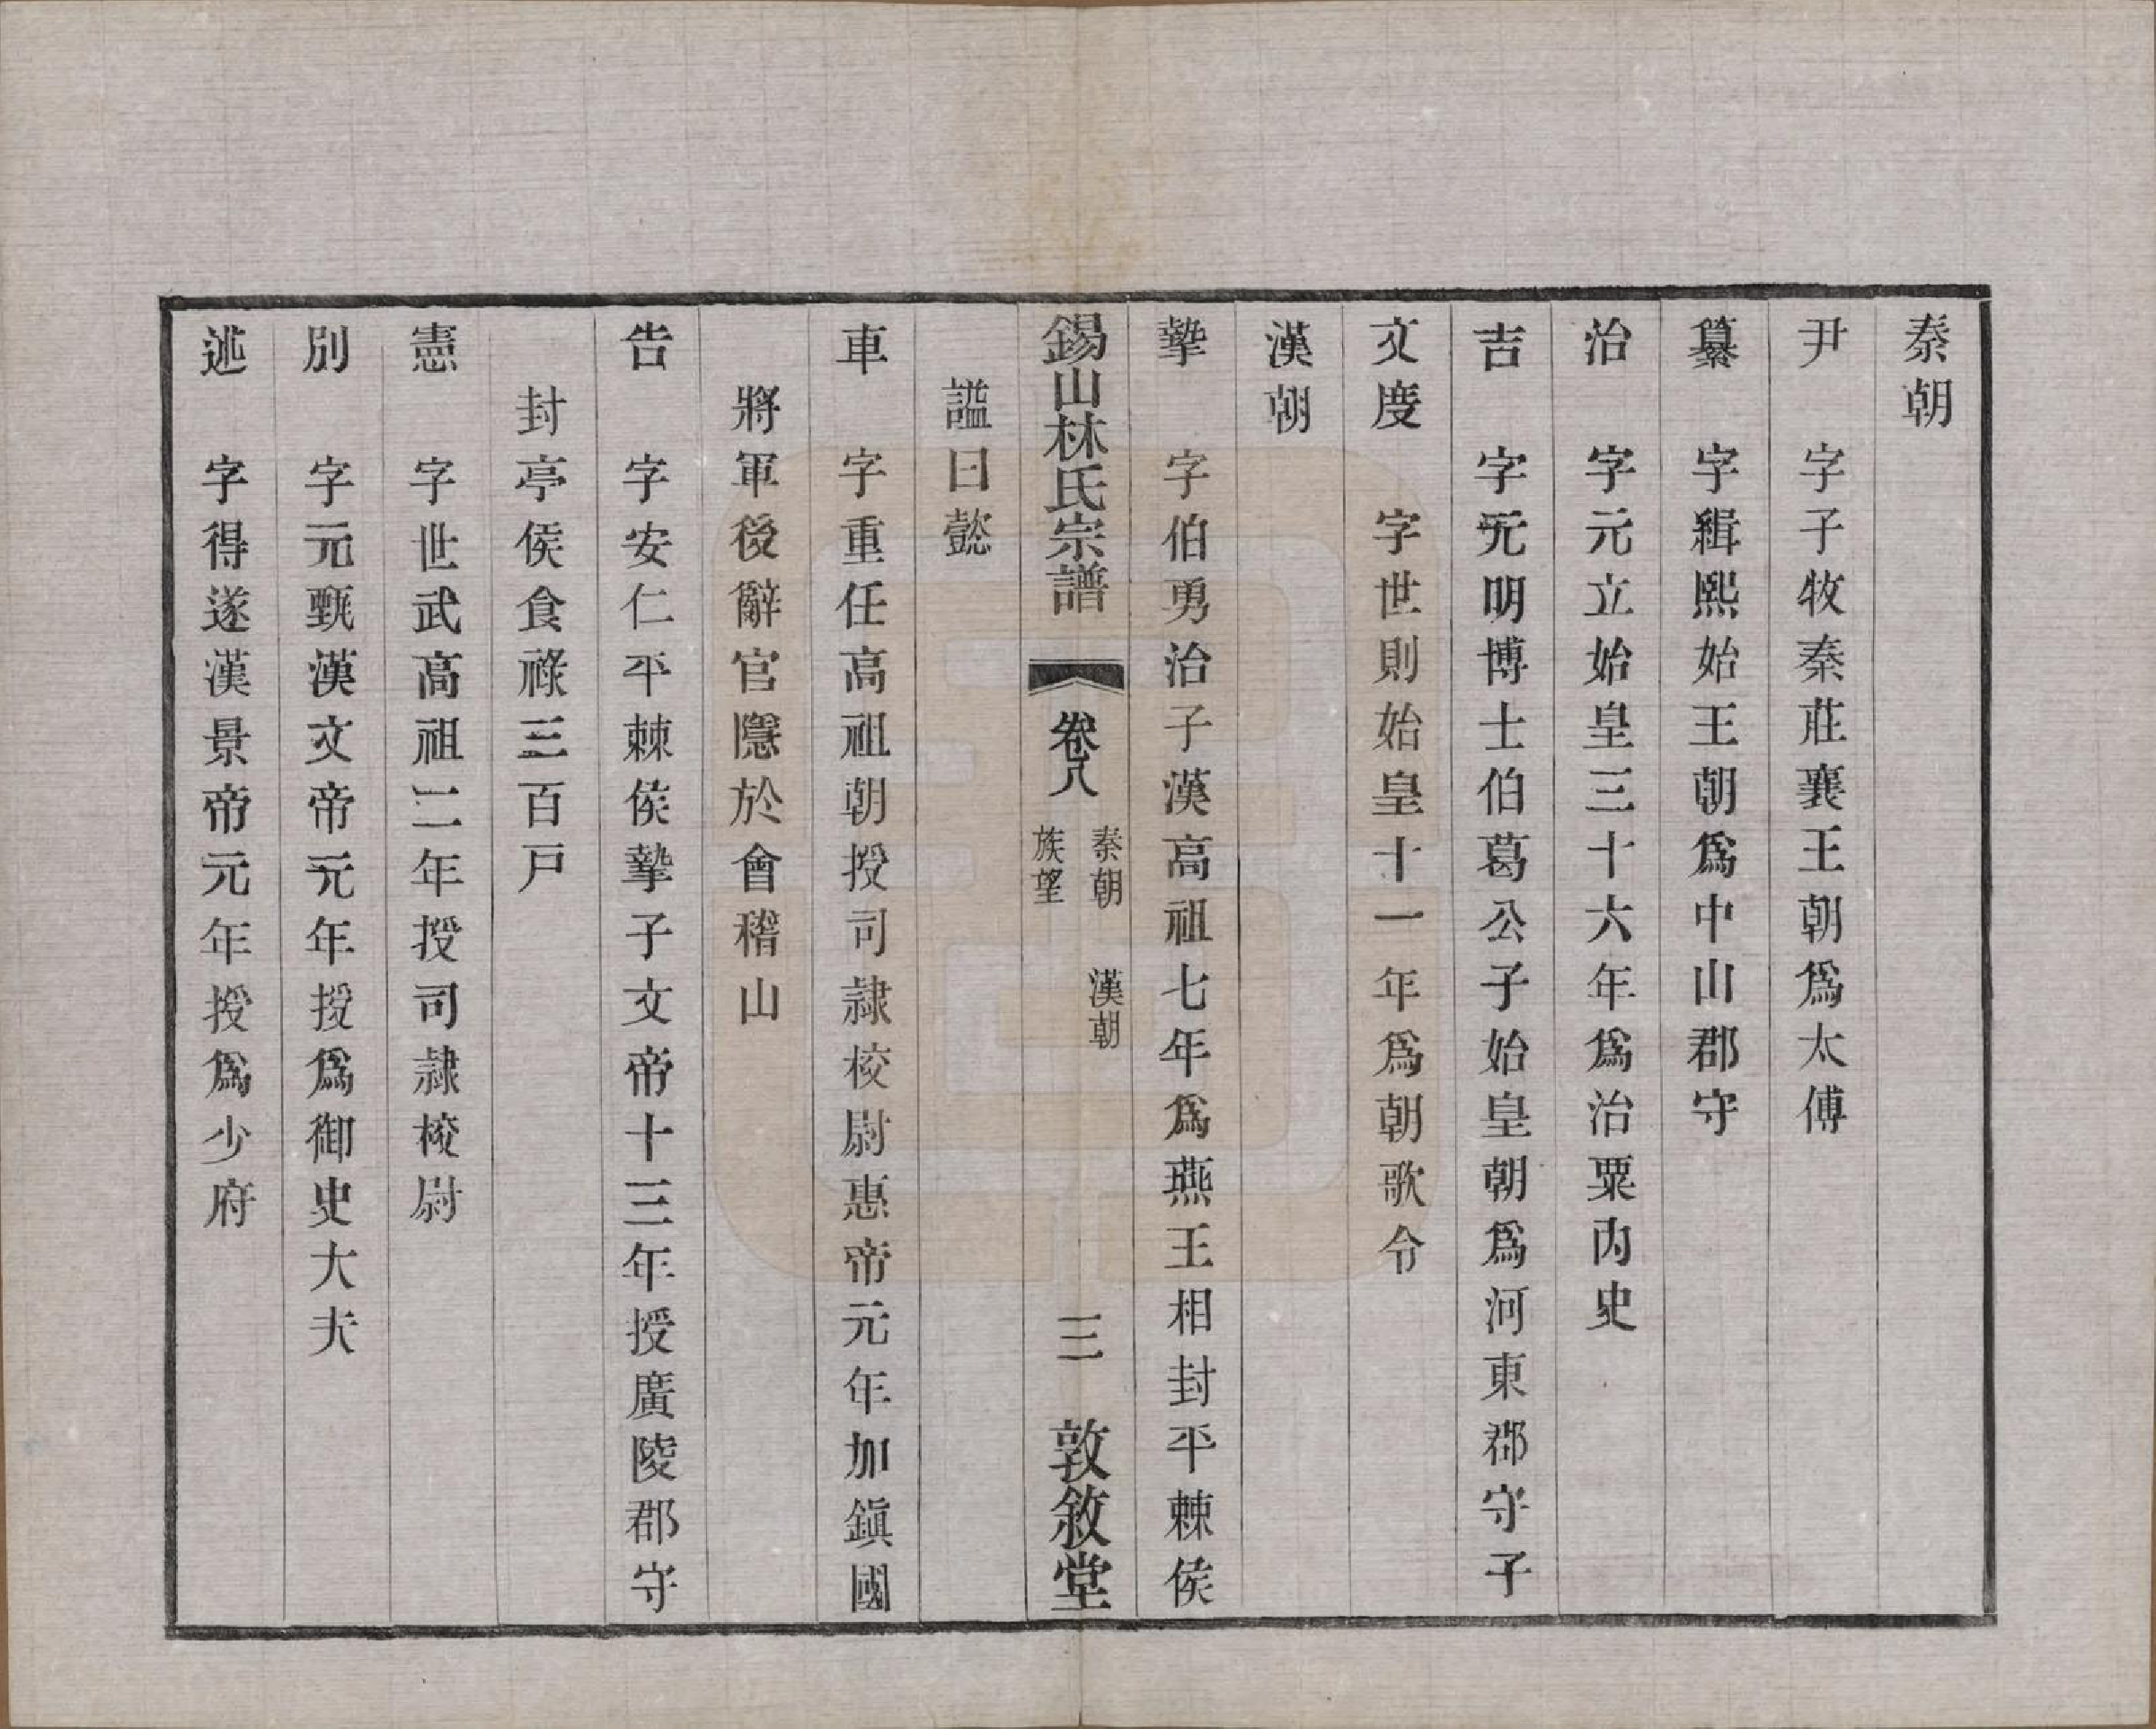 秦朝
尹　字子牧秦莊襄王朝爲太傅
纂　字緝熙始王朝爲中山郡守
治　字元立始皇三十六年爲治粟內史
吉　字元明博士伯葛公子始皇朝爲河東郡守子
文度　字世則始皇十一年爲朝歌令
漢朝
摯　字伯勇治子漢高祖七年爲燕王相封平棘侯
錫山林氏宗譜　卷八　秦朝　漢朝　族望　三　敦敘堂
謚曰懿
車　字重任高祖朝授司隷校尉惠帝元年加鎭國
將軍後辭官隱於會稽山
告　字安仁平棘侯摯子文帝十三年授廣陵郡守
封亭侯食祿三百戸
憲　字世武高祖二年授司隷校尉
別　字元甄漢文帝元年授爲御史大夫
述　字得遂漢景帝元年授爲少府